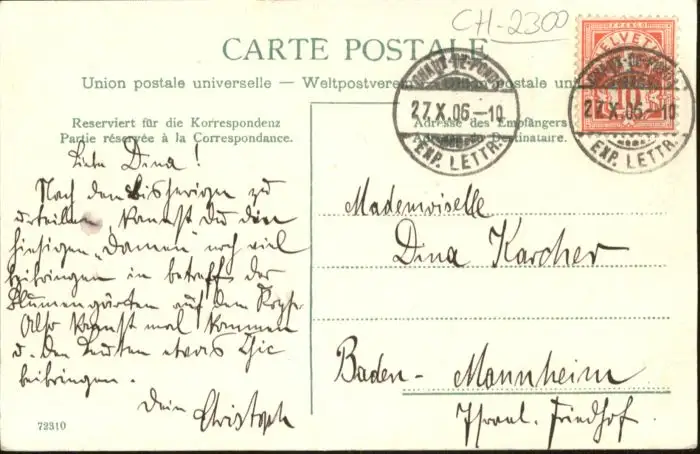 CH-2300
CARTE POSTALE
Union postale universelle — Weltpostverein — Union postale uni
HELVETIA
10
CHAUX-DE-FONDS
27.X.06.-10
EXP. LETTR.
CHAUX-DE-FONDS
27.X.06.-10
EXP. LETTR.
Reserviert für die Korrespondenz
Partie réservée à la Correspondance.
Adresse des Empfängers
Adresse du Destinataire.
Liebe Dina!
Nach dem Bisherigen zu
urteilen kannst Du den
hiesigen „Damen" noch viel
beibringen in betreff der
Blumengärten auf dem Kopfe.
Also kannst mal kommen
u. den Leuten etwas Chic
beibringen.
Dein Christoph
Mademoiselle
Dina Karcher
Baden - Mannheim
Israel. Friedhof.
72310